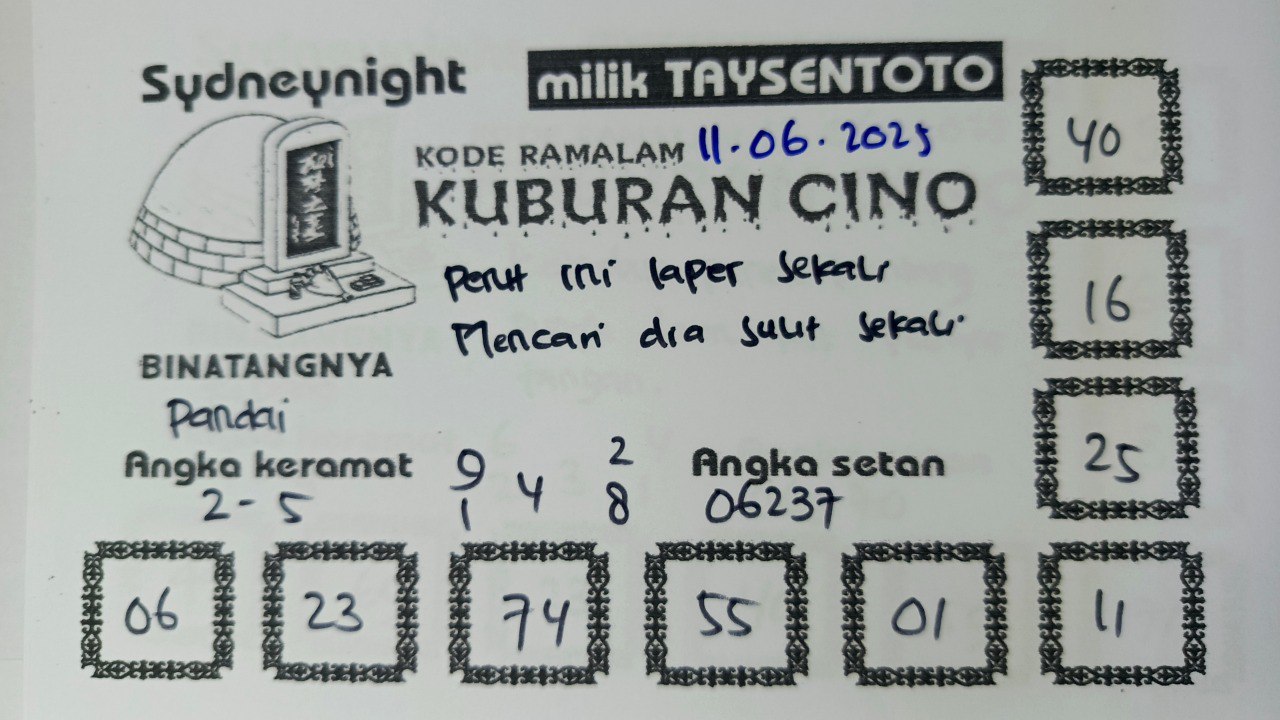 Sydneynight
milik TAYSENTOTO
KODE RAMALAM 11.06.2025
KUBURAN CINO
Perut ini laper sekali
Mencari dia sulit sekali
BINATANGNYA
Pandai
Angka keramat
2-5
9 4 2
1 8
Angka setan
06237
40
16
25
06 23 74 55 01 11